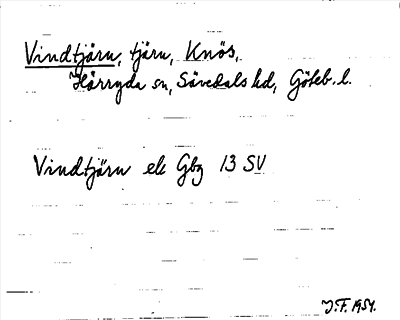 Vindtjärn, tjärn, Knös,
Härryda sn, Sävedals hd, Göteb. l.
Vindtjärn ek Gbg 13 SV
J.F. 1951.